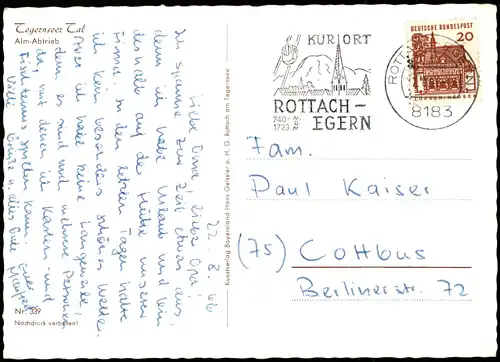 Tegernseer Tal
Alm-Abtrieb
22. 8. 66
Liebe Oma, lieber Opa!
Ich spanne zur Zeit etwas aus,
denn ich habe Urlaub und bin
deshalb auf der Hütte unserer
Firma. In den letzten Tagen hatte
ich kein besonders schönes Wetter.
Aber ich habe keine Langeweile,
denn es sind noch mehrere Personen
da, mit denen ich Karten- und
Tischtennis spielen kann.
Viele Grüße u. alles Gute euer
Manfred
Nr. 339
Nachdruck verboten!
Kunstverlag Bayernland Hans Geissler o. H. G. Rottach am Tegernsee
KURORT
ROTTACH-
EGERN
740-M.
1723 M.
DEUTSCHE BUNDESPOST
20
LORSCH/HESSEN
8183
Fam.
Paul Kaiser
(75) Cottbus
Berlinerstr. 72